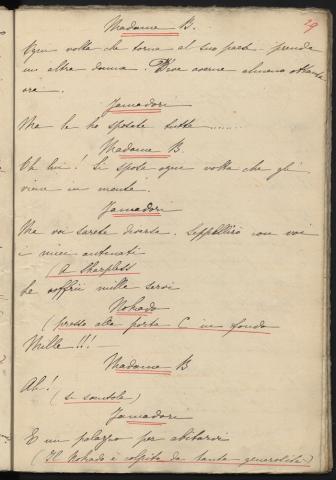 29
Madame B.
Ogni volta che torna al suo paese prende
un altra donna. Deve averne almeno ottanta
ora.
Jamadori
Ma le ho sposate tutte......
Madame B.
Oh lui! Si sposa ogni volta che gli
viene in mente.
Jamadori
Ma voi sarete diversa. Seppellirò con voi
i miei antenati
(A Sharpless)
Le offrii mille servi
Nohado
(presso alla porta C in fondo
Mille!!!
Madame B
Ah!
(si scatola)
Jamadori
E un palazzo per abitarvi
(Il Nohado è colpito da tanta generosità)